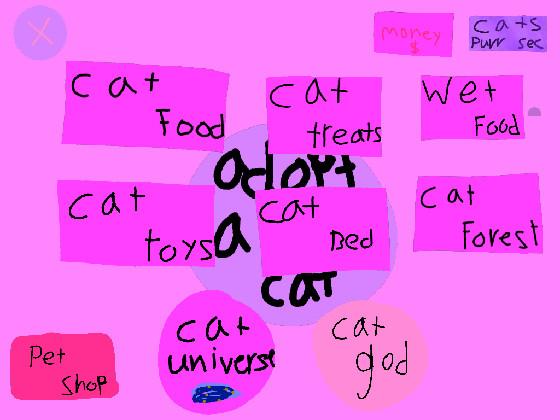 X
money
$
cats
purr sec
cat
Food
cat
treats
wet
Food
adopt
a
cat
cat
toys
cat
Bed
cat
Forest
Pet
Shop
cat
universe
cat
god